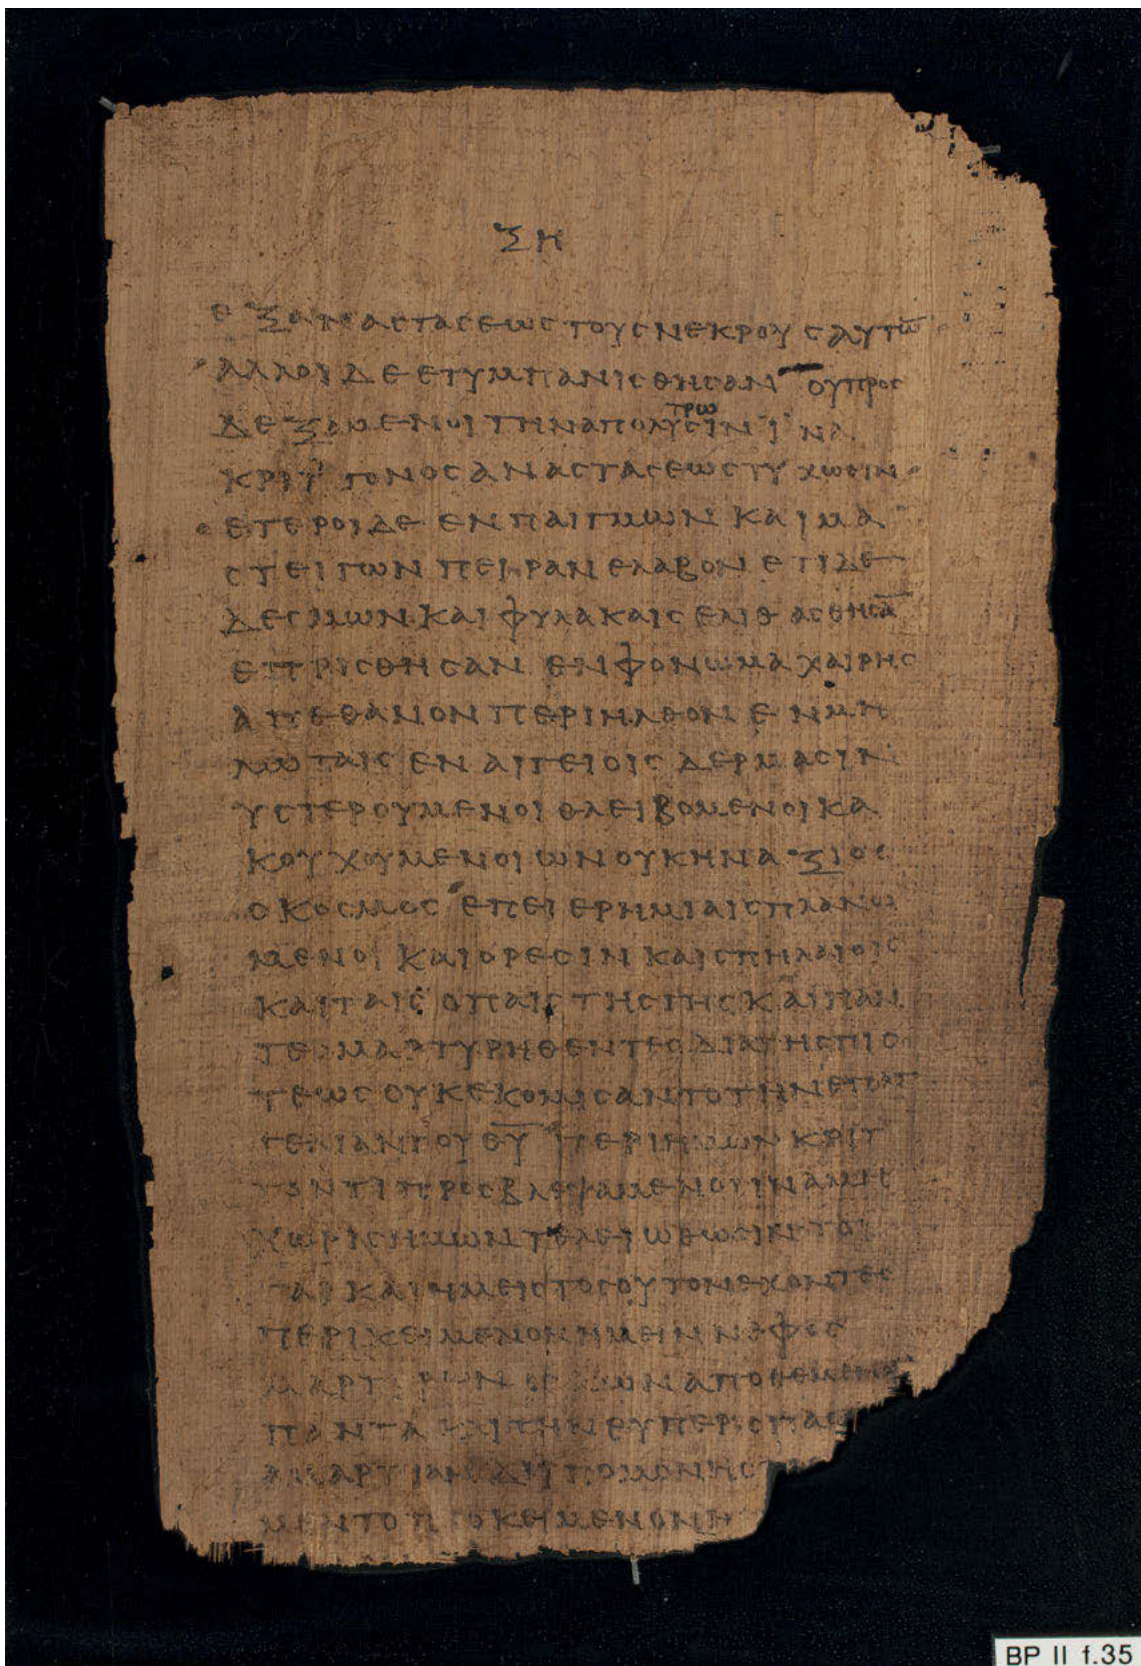 ξη
εξαναστασεωςτουςνεκρουςαυτω̅
αλλοιδεετυμπανισθησανουπρος
δεξαμενοιτηναπολυτρωσινινα
κριττονοσαναστασεωςτυχωσιν
ετεροιδεενπαιγμωνκαιμα
στειγωνπειρανελαβονετιδε
δεσμωνκαιφυλακαιςελιθασθησα̅
επρισθησανενφονωμαχαιρης
απεθανονπεριηλθονενμη
λωταιςεναιγειοιςδερμασιν
υστερουμενοιθλειβομενοικα
κουχουμενοιωνουκηναξιος
οκοσμοςεπειερημιαιςπλανω
μενοικαιορεσινκαισπηλαιοις
καιταιςοπαιςτηςγηςκαιπαν
τεσμαρτυρηθεντεςδιατηςπισ
τεωςουκεκομισαντοτηνεπαγ
γελιαντουθ̅υ̅περιημωνκριτ
τοντιπροσβλεψαμενουιναμης
χωρισημωντελειωθωσιντοι
γαρκαιημειςτοσουτονεχοντες
περικειμενονημεινν[ε]φος
μαρτυρωνογκονаποθεμενοι
πаντακαιτηνευπερισπασ
αμαρτιανδιυπομονης
μεντονπροκειμενονη
BP II f.35